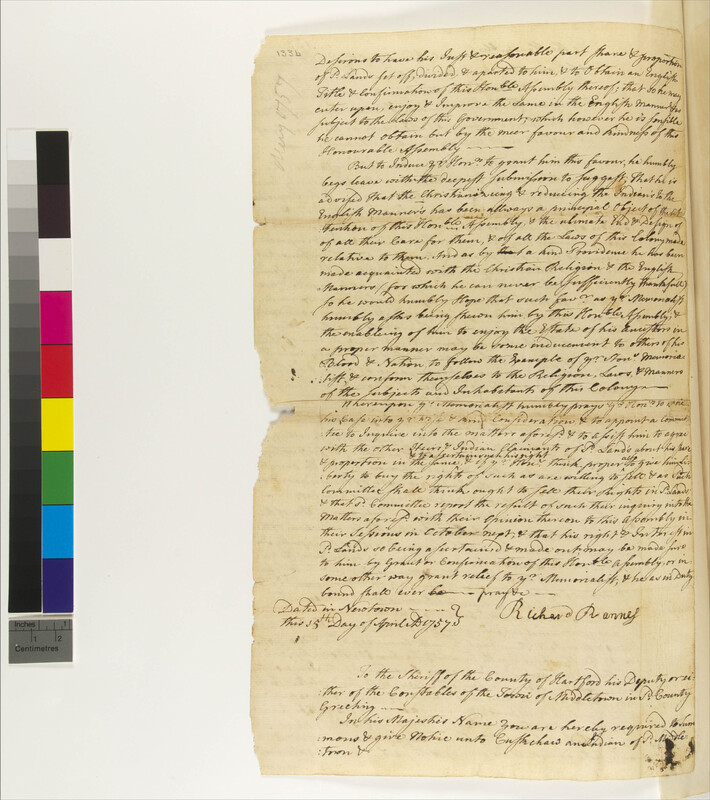 133b
May 1757
Desirous to have his Just & reasonable part share & proportion
of sd. Lands set off, divided & aparted to him, & to Obtain an English
Title & Confirmation of this Honble Assembly thereof; that so he may
enter upon, enjoy & Improve the Same in the English Manner &
subject to the Laws of this Government; which however he is sensible
he cannot obtain but by the meer favour and kindness of this
Honourable Assembly
But to Induce yr. Honrs. to grant him this favour, he humbly
begs leave with the deepest submission to suggest, that he is
advised that the Christianizing & reduceing the Indians to the
English Manners has been allways a principal Object of the At
tention of this Honble Assembly, & the ultimate End & Design of
of all their Care for them, & of all the Laws of this Colony made
relative to them. And as by a kind Providence he has been
made acquainted with the Christian Religion & the English
Manners (for which he can never be sufficiently thankfull)
so he would humbly Hope that such favr. as yr. Memorialist
humbly asks being shewn him by this Honble Assembly, &
the enableing of him to enjoy the Estate of his Ancestors in
a proper manner may be some enducement to others of his
Blood & Nation to follow the Example of yr. Honrs. Memoria
list, & conform themselves to the Religion, Laws, & Manners
of the Subjects and Inhabetants of this Colony
Whereupon yr. Memorialist humbly prays yr. Honrs. to
his Case into yr. & kind Consideration & to appoint a Commit
tee to Inquire into the matters aforesd. & to assist him to agree
with the other Heirs & Indian Claimants of sd. Lands about his share
& to ascertain such his right
& proportion in the same, & if yr. Honrs. think proper also to give him li
berty to buy the rights of such as are willing to sell & as such
Committee shall think ought to sell their Rights in sd. Lands
& that sd. Committee report the result of such their inquiry into the
Matters aforesd. with their Opinion thereon to this Assembly in
their Sessions in October next, & that his right & Interest in
sd. Lands so being ascertain'd & made out may be made sure
to him by Grant or Confirmation of this Honble Assembly, or in
some other way grant relief to yr. Memorialist, & he as in Duty
bound shall ever pray &c
Dated in Newtown
this 15th Day of April AD 1757
Richard Rannes
To the Sheriff of the County of Hartford his Deputy or ei
:ther of the Constables of the Town of Middletown in sd. County
Greeting
In his Majesties Name You are hereby required to sum
:mons & give Notice unto Cushshaw an Indian of sd. Middle
:town &
Inches 1 2
Centimetres